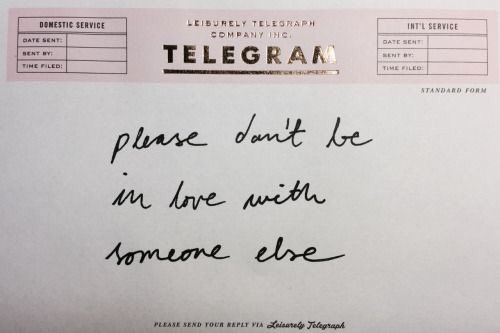 DOMESTIC SERVICE
DATE SENT:
SENT BY:
TIME FILED:
LEISURELY TELEGRAPH
COMPANY INC.
TELEGRAM
INT'L SERVICE
DATE SENT:
SENT BY:
TIME FILED:
STANDARD FORM
please don't be
in love with
someone else
PLEASE SEND YOUR REPLY VIA Leisurely Telegraph